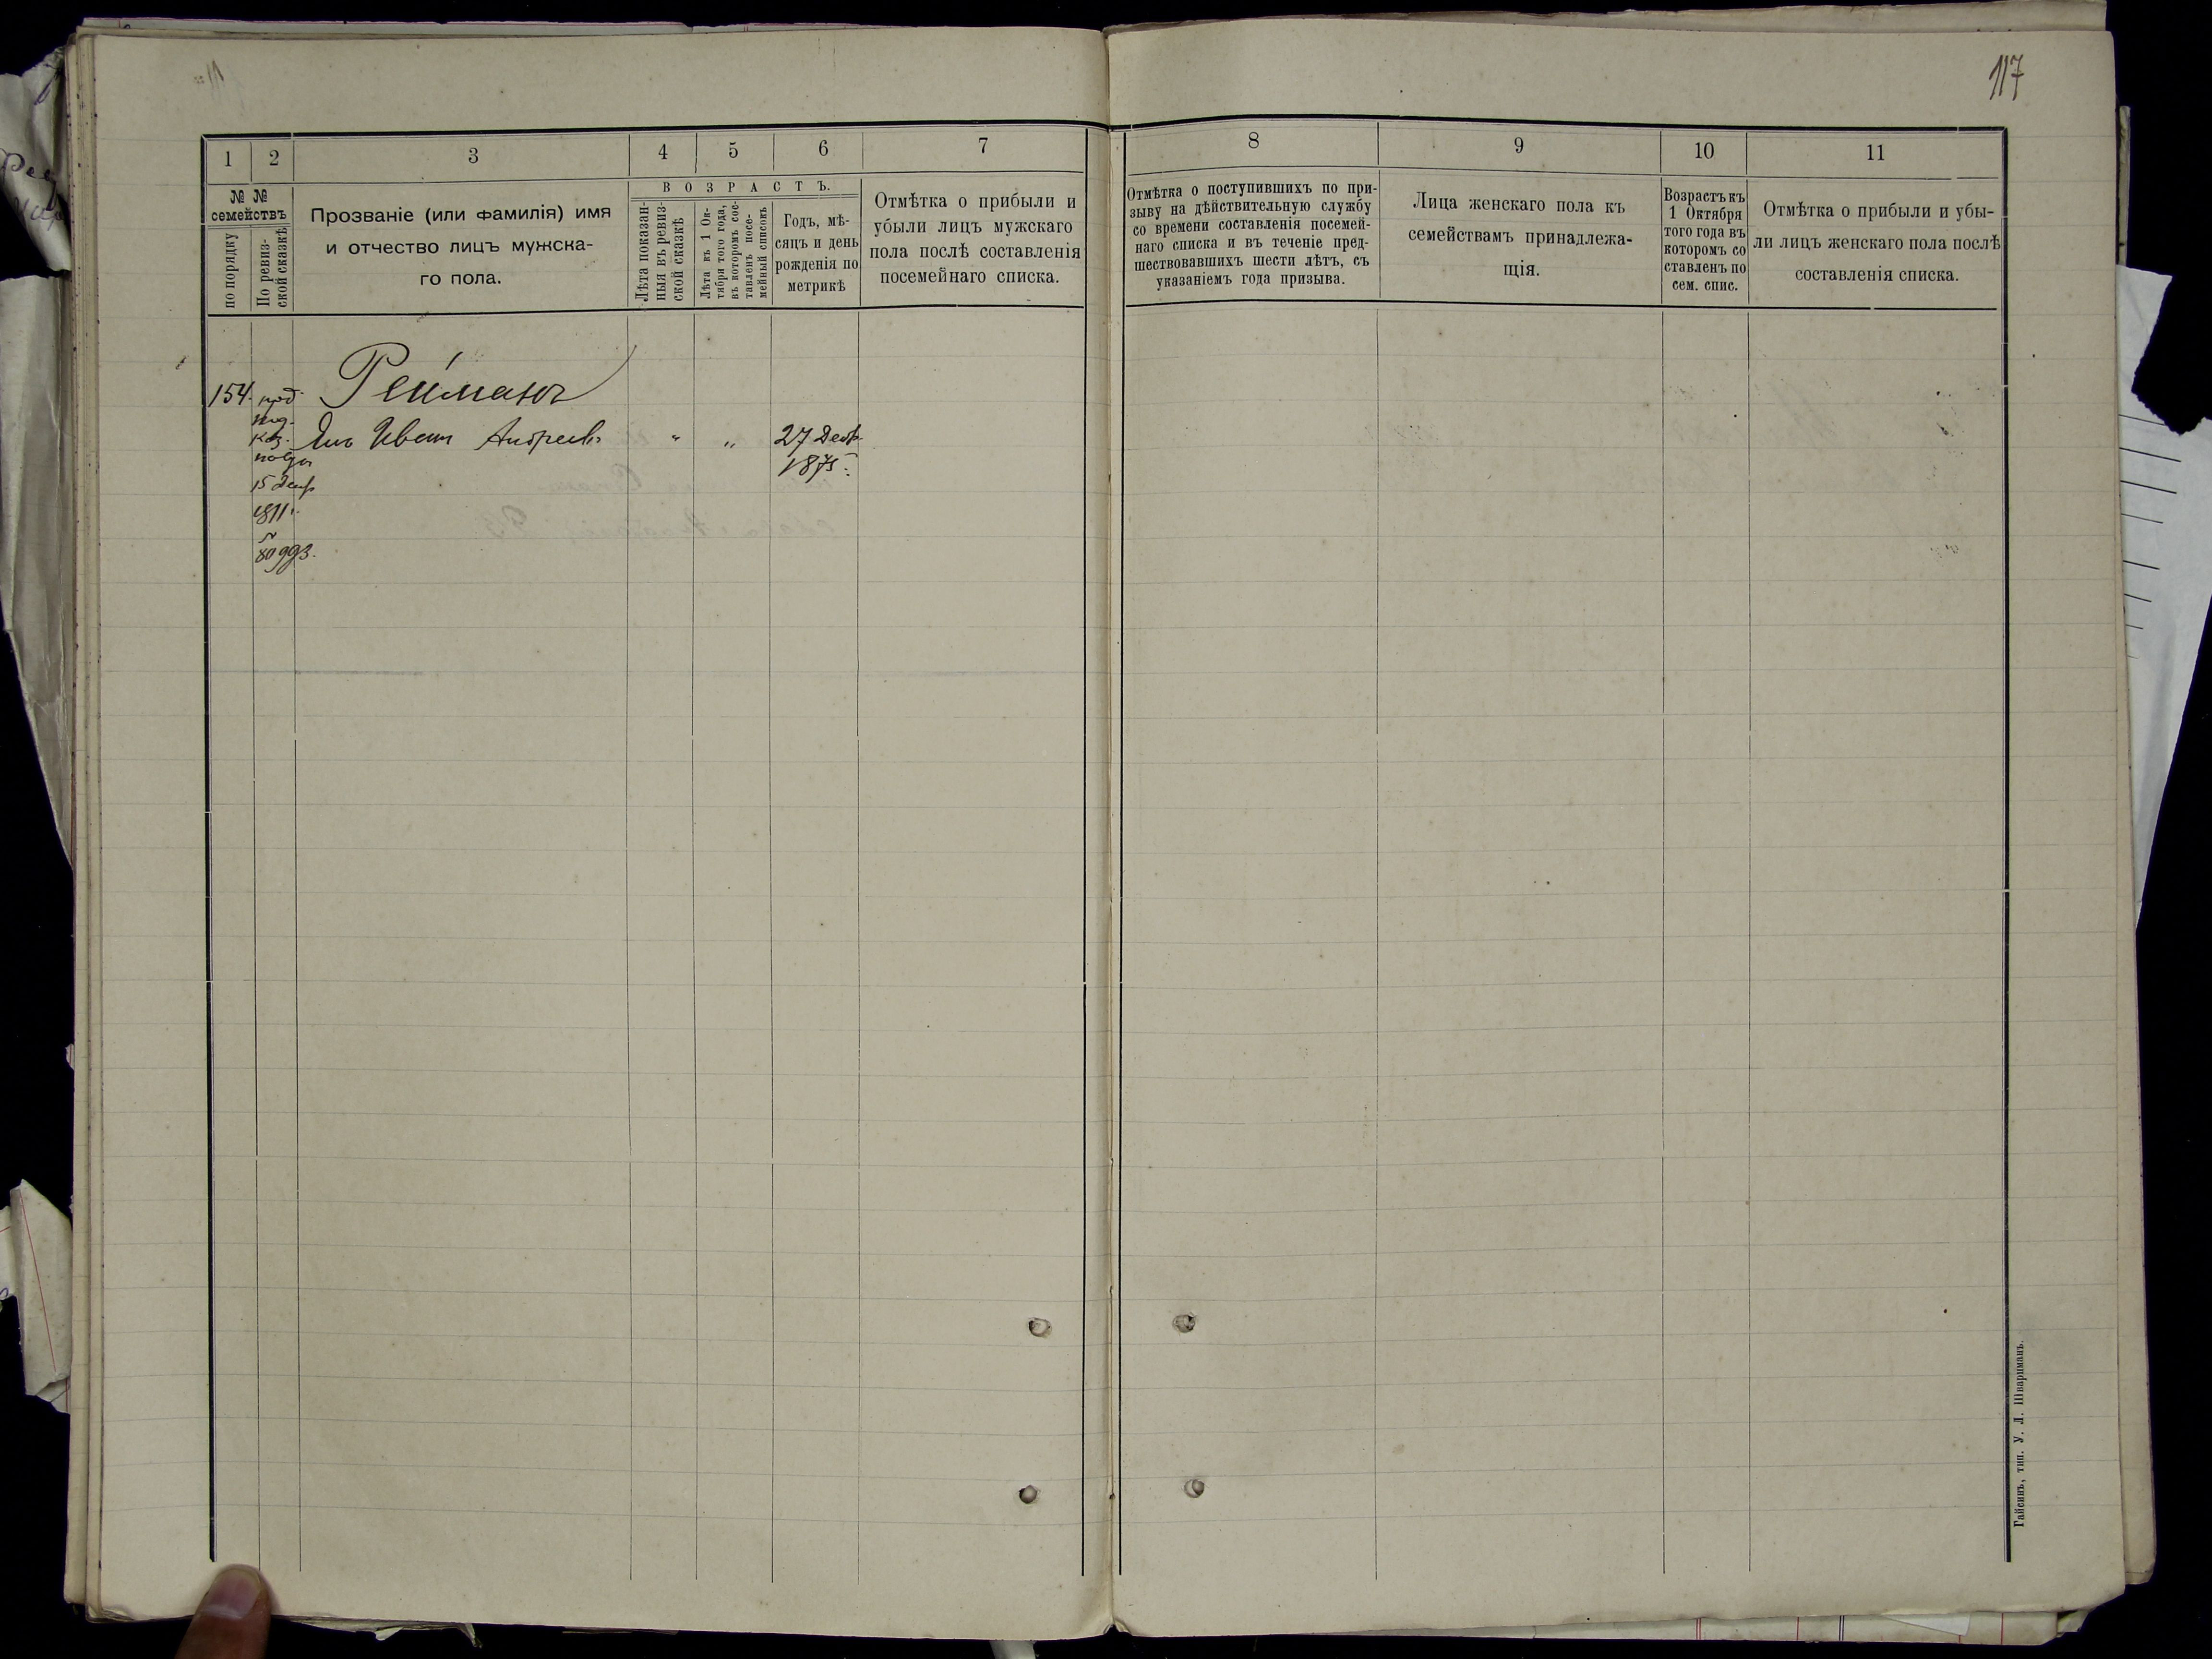 117
1 2 3 4 5 6 7
№ №
семействъ
по порядку
По ревиз-
ской сказкѣ
Прозваніе (или фамилія) имя
и отчество лицъ мужска-
го пола.
ВОЗРАСТЪ.
Лѣта показан-
ныя въ ревиз-
ской сказкѣ
Лѣта къ 1 Ок-
тября того года,
въ которомъ сос-
тавленъ посе-
мейный списокъ
Годъ, мѣ-
сяцъ и день
рожденія по
метрикѣ
Отмѣтка о прибыли и
убыли лицъ мужскаго
пола послѣ составленія
посемейнаго списка.
8 9 10 11
Отмѣтка о поступившихъ по при-
зыву на дѣйствительную службу
со времени составленія посемей-
наго списка и въ теченіе пред-
шествовавшихъ шести лѣтъ, съ
указаніемъ года призыва.
Лица женскаго пола къ
семействамъ принадлежа-
щія.
Возрастъ къ
1 Октября
того года въ
которомъ со
ставленъ по
сем. спис.
Отмѣтка о прибыли и убы-
ли лицъ женскаго пола послѣ
составленія списка.
154. Рейманъ
Иванъ Андреевъ „ „ 27 Декб.
1875.
15 Декбр
1911.
№
80993.
Гайсинъ, тип. У. Л. Шварцманъ.